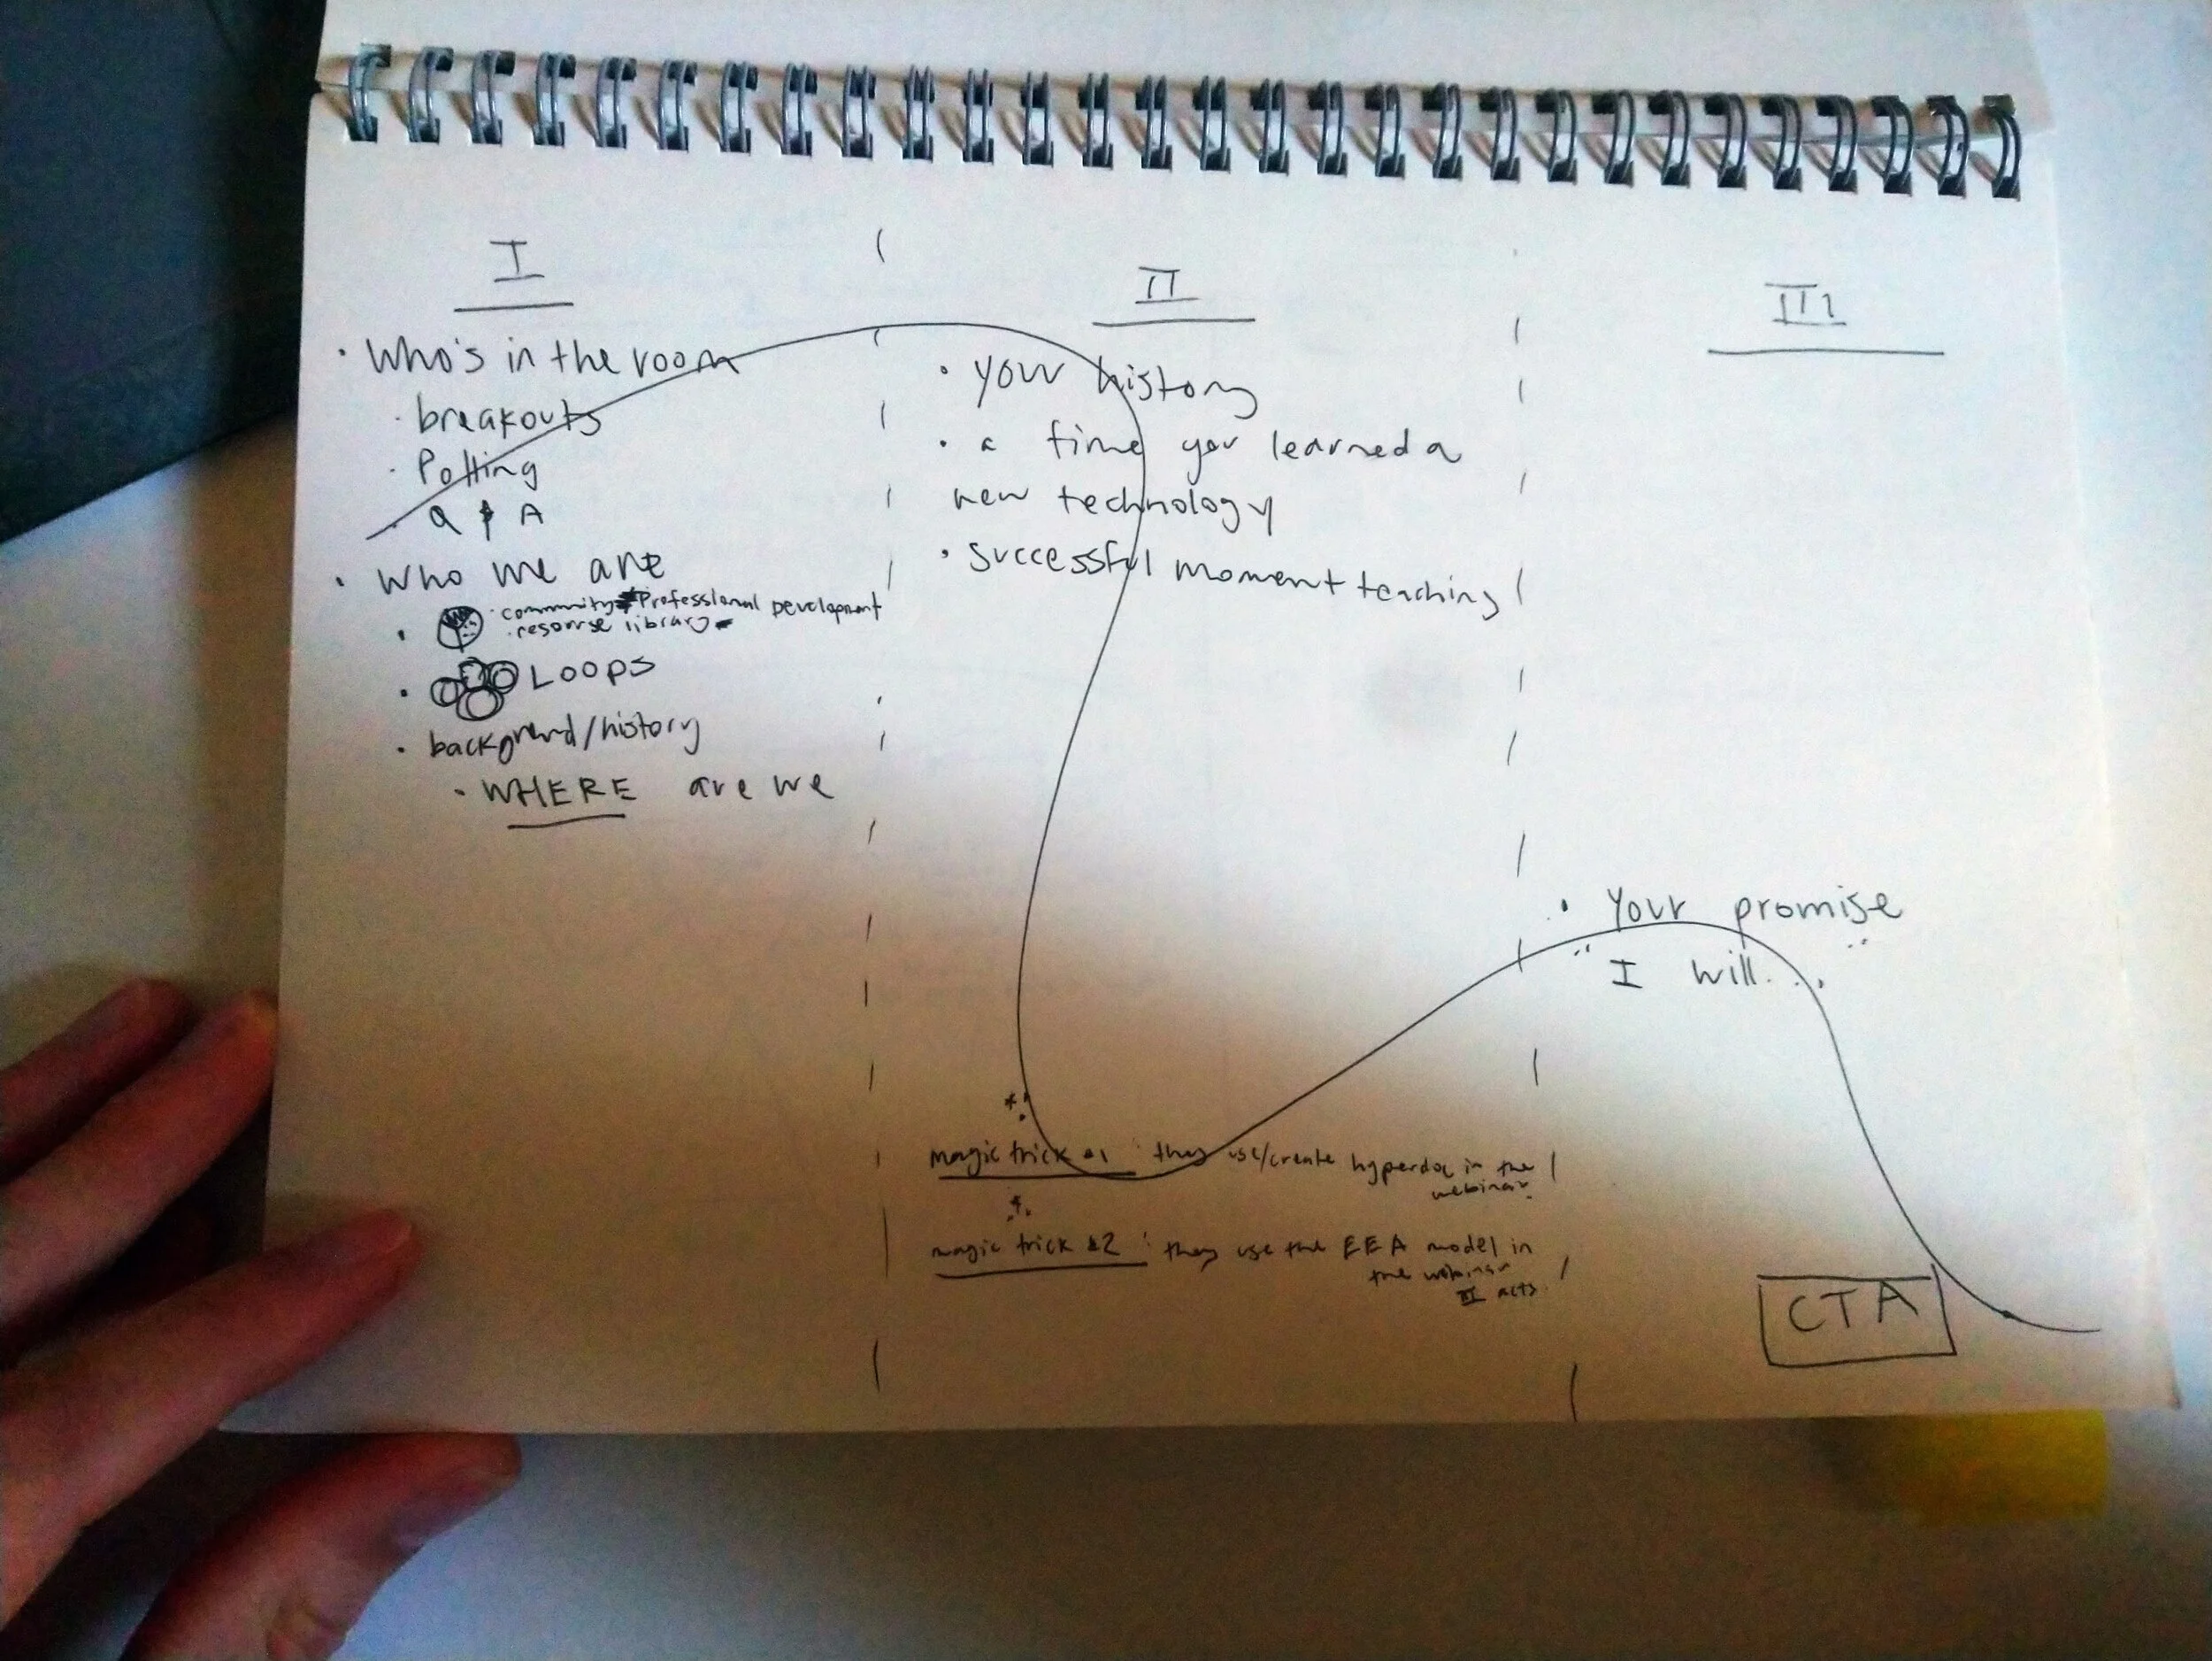 I
• Who's in the room
· breakouts
· Polling
· Q & A
• Who we are
• · community Professional Development
· resourse library
• Loops
• background/history
• WHERE are we
II
• your history
• a time you learned a
new technology
• successful moment teaching
magic trick #1 : they use/create hyperdoc in the
webinar.
magic trick #2 : they use the EEA model in
the webinar
III acts.
III
• Your promise
"I will..."
CTA